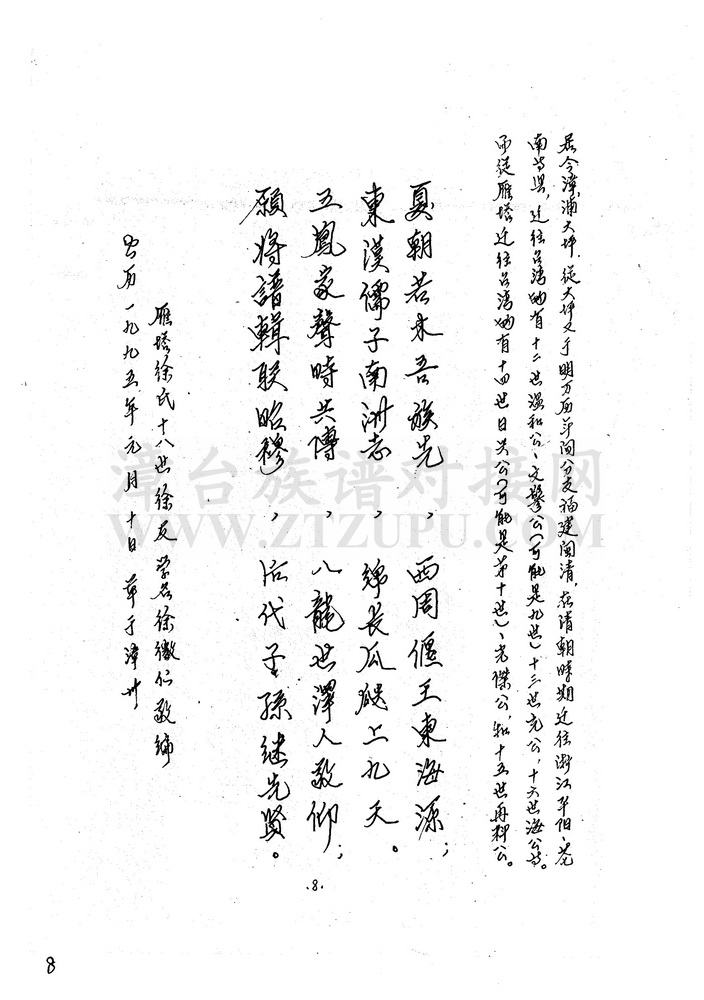 居今漳浦大坪.从大坪又于明万历年间分支福建闽清,在清朝时期迁往浙江平阳、苍
南等县,迁往台湾的有十二世温和公、文声公(可能是九世)十三世元公,十六世海公等。
而徙雁塔迁往台湾的有十四世日兴公(可能是第十世)、光杰公,和十五世再押公。
夏朝若木吾族先,西周偃王東海源;
東漢儒子南洲志,綿長瓜瓞上九天。
五鳳家聲時共傳,八龍世澤人敬仰;
願将譜輯联昭穆,后代子孫继先賢。
雁塔徐氏十八世徐友 学名徐徽仁敬编
公历一九九五年元月十日草于漳州
.8.
8
漳台族谱对接网
WWW.ZTZUPU.COM